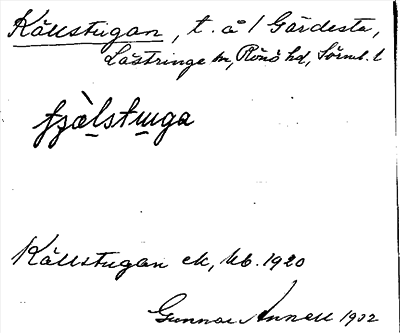 Källstugan, t. å 1 Gärdesta,
Lästringe sn, Rönö hd, Sörml. l
Källstugan ek, kb. 1920
Gunnar Annell 1932